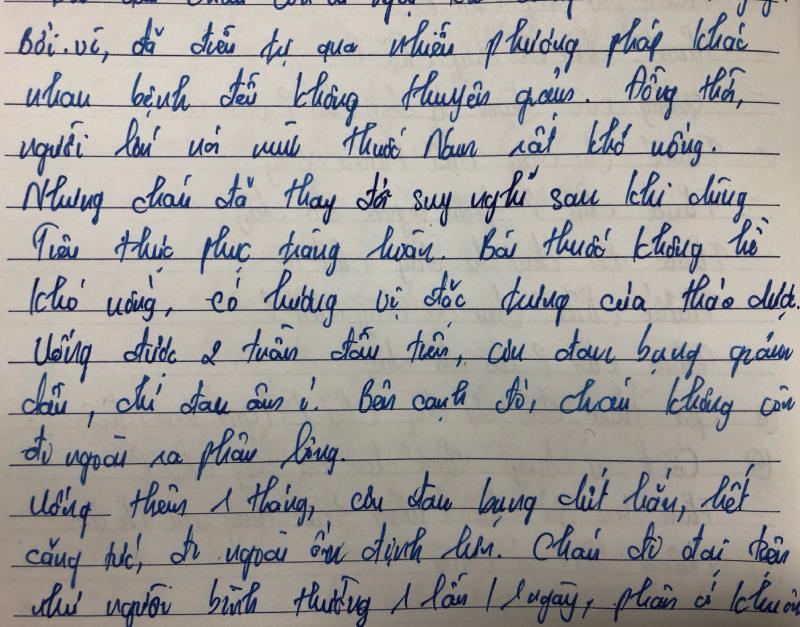 Bởi vì, đã điều trị qua nhiều phương pháp khác
nhau bệnh đều không thuyên giảm. Đồng thời,
người lớn nói mùi thuốc Nam rất khó uống.
Nhưng cháu đã thay đổi suy nghĩ sau khi dùng
Tiêu thực phục tràng hoàn. Bài thuốc không hề
khó uống, có hương vị đặc trưng của thảo dược.
Uống được 2 tuần đầu tiên, cơn đau bụng giảm
dần, chỉ đau âm ỉ. Bên cạnh đó, cháu không còn
đi ngoài ra phân lỏng.
Uống thêm 1 tháng, cơn đau bụng dứt hẳn, hết
căng tức, đi ngoài ổn định hơn. Cháu đi đại tiện
như người bình thường 1 lần / 1 ngày, phân có khuôn